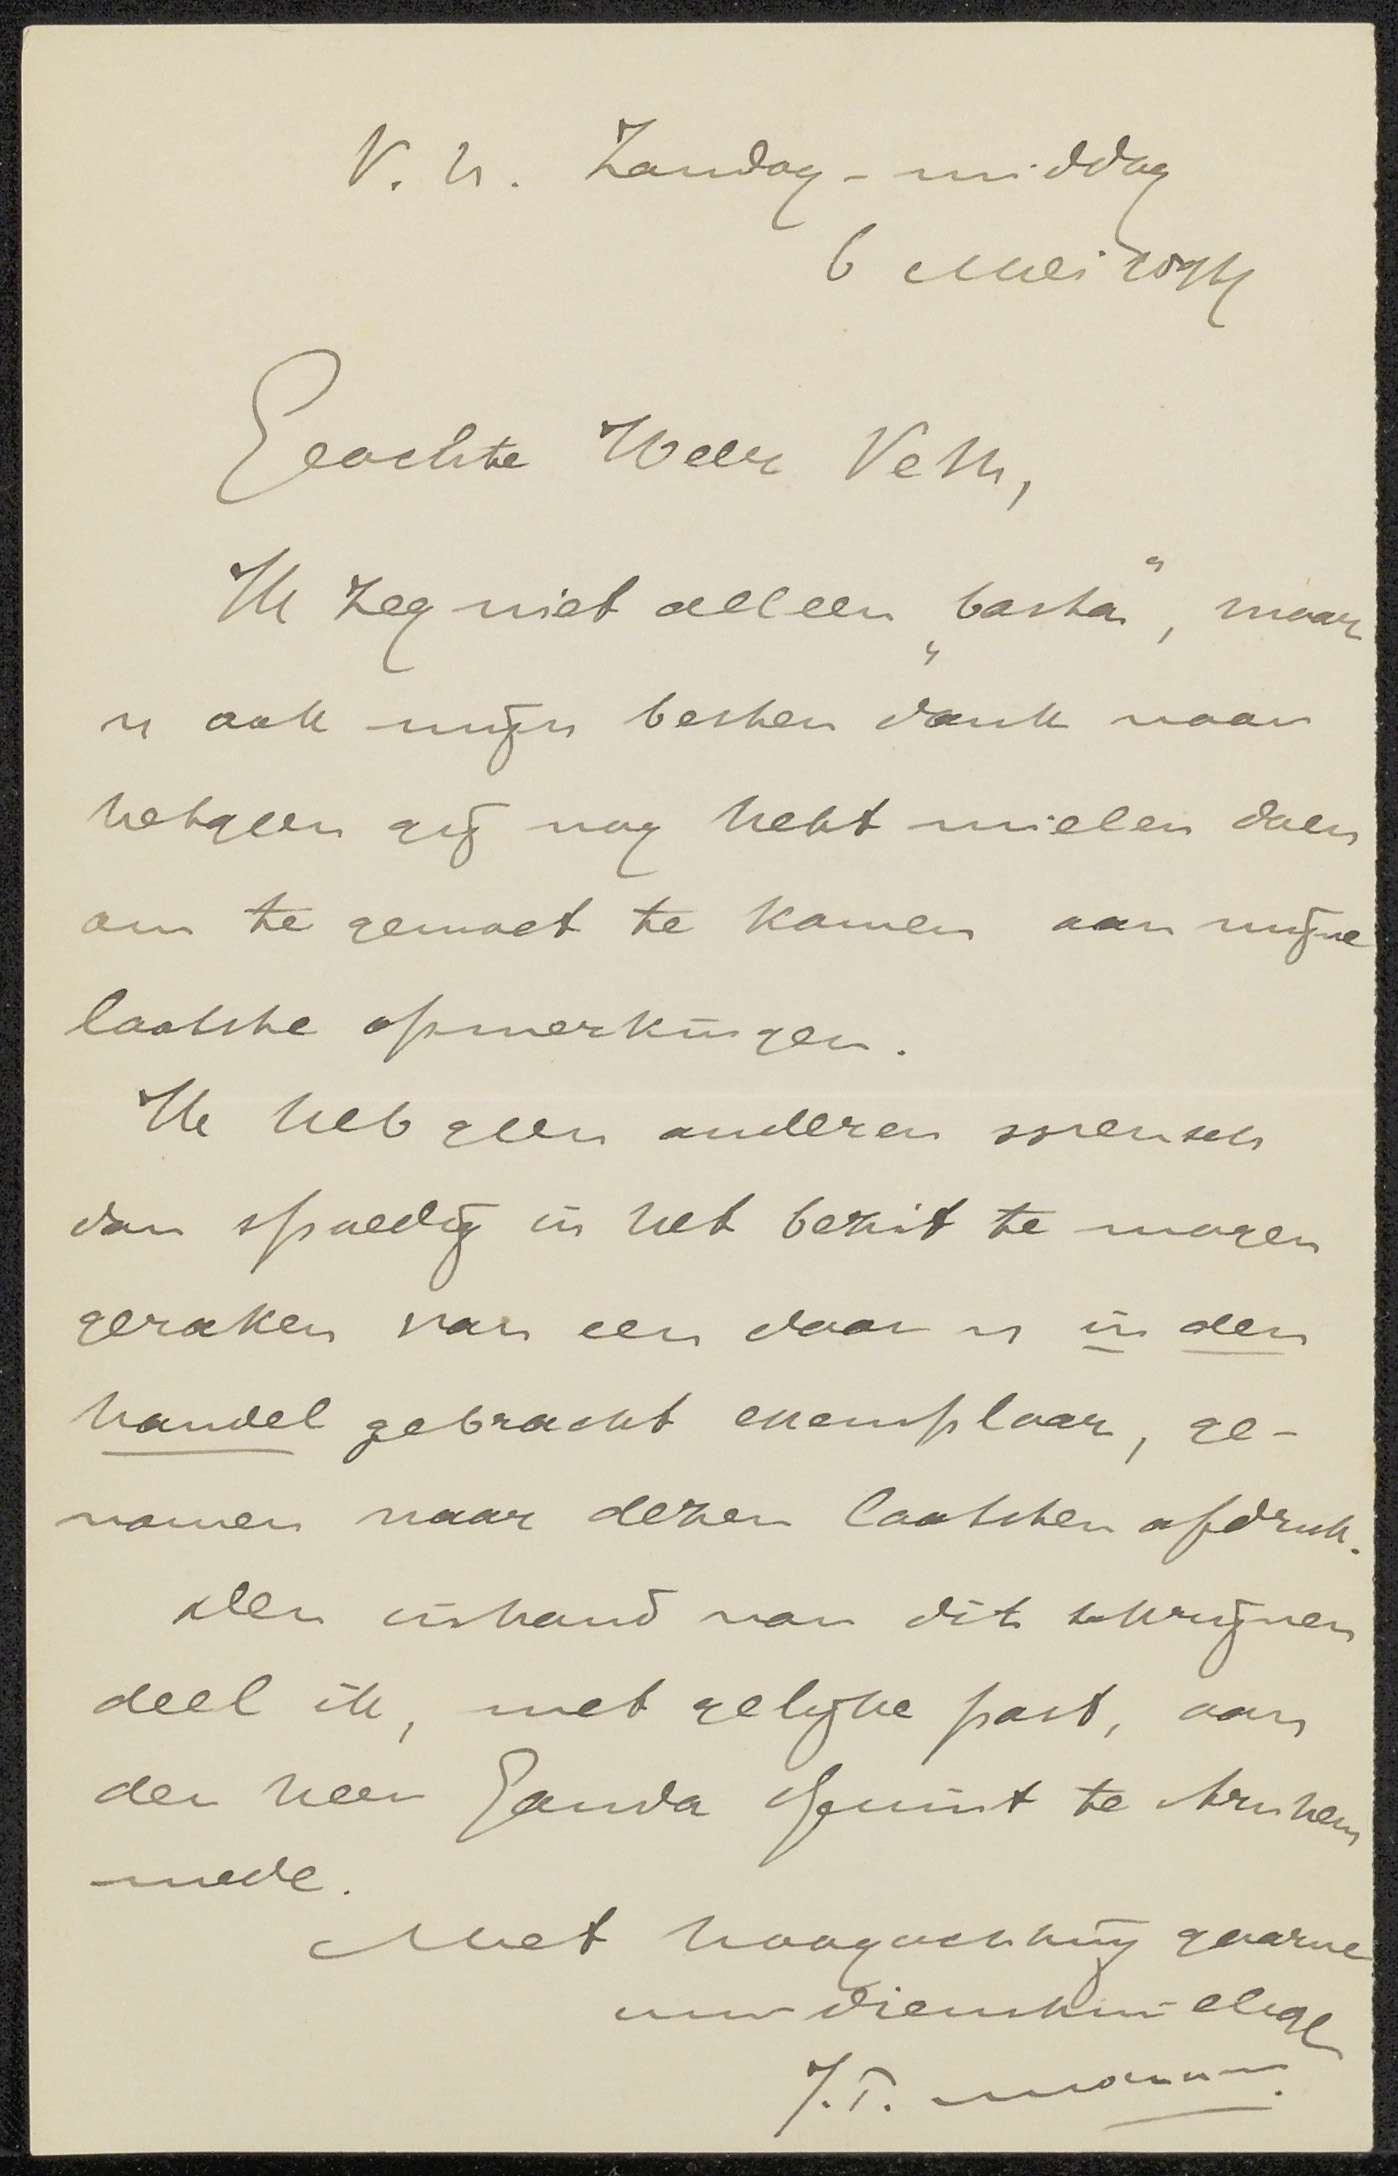 V. h. Zondag - middag
6 Mei 1894
Geachte Heer Veth,
Ik zeg niet alleen „basta", maar
u ook mijn besten dank voor
hetgeen gij nog hebt willen doen
om te gemoet te komen aan mijne
laatste opmerkingen.
Ik heb geen anderen wensch
dan spoedig in het bezit te mogen
geraken van een door u in den
handel gebracht exemplaar, ge-
nomen naar dezen laatsten afdruk.
Den inhoud van dit schrijven
deel ik, met gelijke post, aan
den heer Gouda Quint te Arnhem
mede.
Met hoogachting gaarne
uw dienstwillige
J.T.